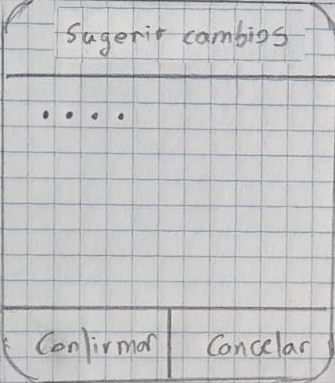 Sugerir cambios
. . . .
Confirmar
Cancelar